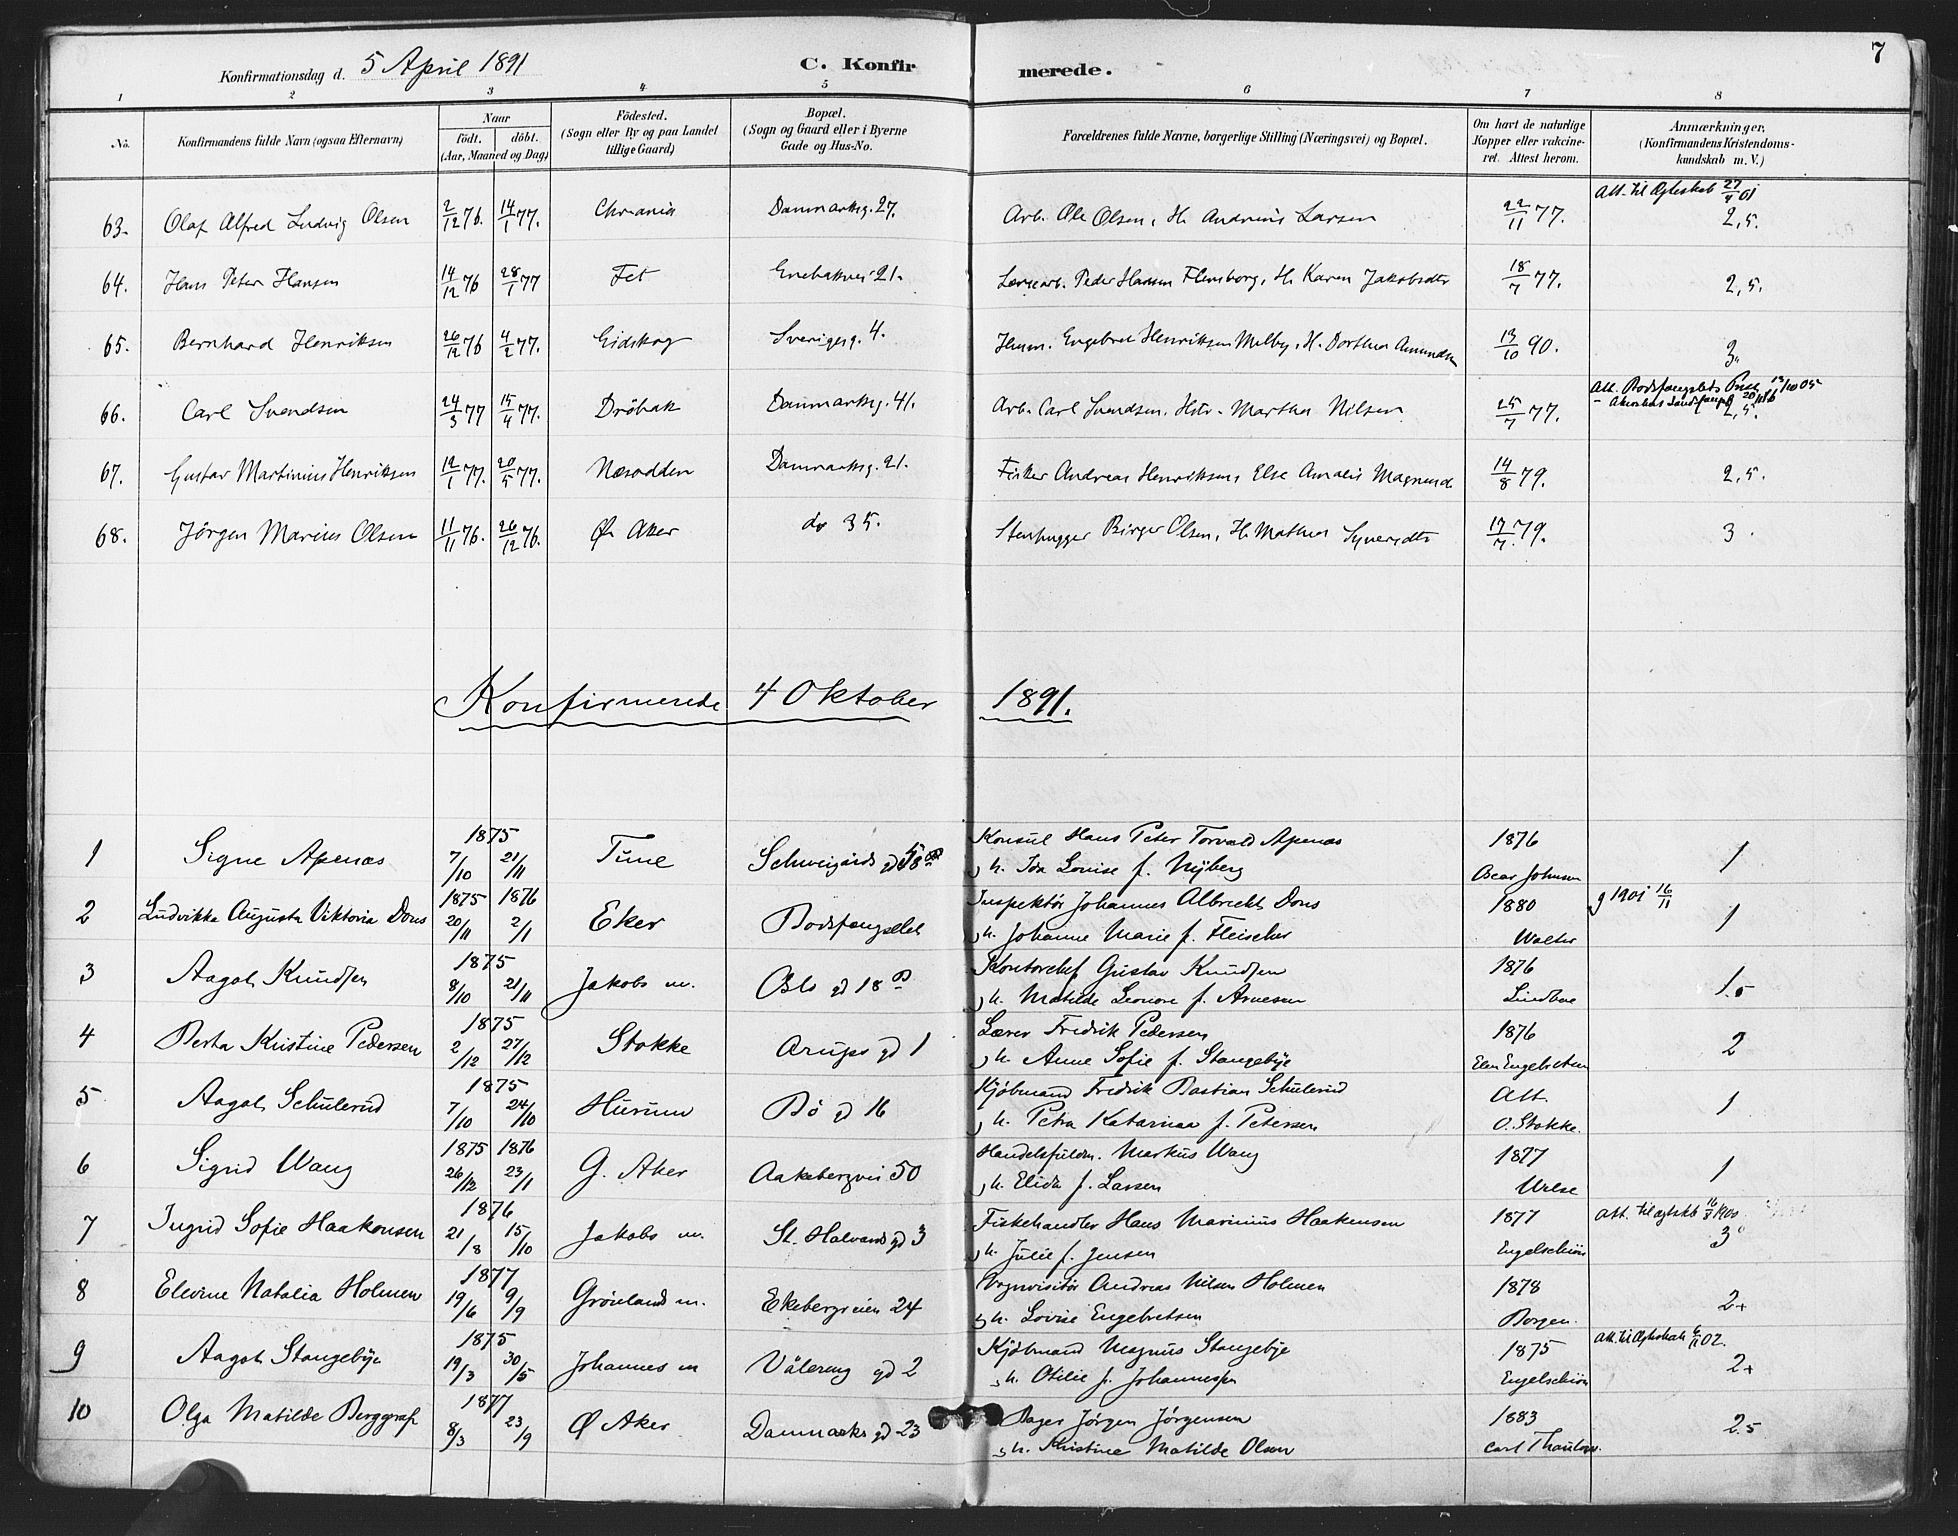 7
Konfirmationsdag d. 5 April 1891 C. Konfirmerede.
1 2 3 4 5 6 7 8
No. Konfirmandens fulde Navn (ogsaa Efternavn) Naar født. døbt. (Aar, Maaned og Dag) Fødested. (Sogn eller By og paa Landet tillige Gaard) Bopæl. (Sogn og Gaard eller i Byerne Gade og Hus-No. Forældrenes fulde Navne, borgerlige Stilling (Næringsvei) og Bopæl. Om havt de naturlige Kopper eller vakcineret. Attest herom. Anmærkninger. (Konfirmandens Kristendomskundskab m. V.)
Att. til Ægteskab 27/4 01
63. Olaf Alfred Ludvig Olsen 2/12 76. 14/1 77. Chrania Danmarksg. 27. Arb. Ole Olsen, H. Andrine Larsen 22/11 77. 2,5.
64. Hans Peter Hansen 14/12 76 28/1 77 Fet Enebakvei 21. Peder Hansen Flensborg, H. Karen Jakobsdtr 18/7 77. 2,5.
65. Bernhard Henriksen 26/12 76 4/2 77. Eidskog Sverigesg. 4. Engebret Henriksen Melby, H. Dorthea Amundsen 13/10 90. 3.
Att. Bodsfængslets 13/10 05
66. Carl Svendsen 24/3 77 15/4 77. Drøbak Danmarksg. 41. Arb. Carl Svendsen, Martha Nilsen 25/7 77. 2,5.
67. Gustav Martinius Henriksen 12/1 77. 20/5 77. Næsodden Danmarksg. 21. Fisker Andreas Henriksen, Else Amalie Magnusd. 14/8 79. 2,5.
68. Jørgen Marius Olsen 11/11 76. 26/12 76. Ø. Aker do 35. Stenhugger Birger Olsen, H. Mathea 19/7 79. 3.
Konfirmerede 4 Oktober 1891.
1875 Konsul Hans Peter Torvald Apenæs 1876
1 Signe Apenæs 7/10 21/11 Tune Schweigårds gd h. Ida Lovise f. Nyberg Oscar Johnsen 1
1875 1876 Inspektør Johannes Albrecht Dons 1880 g 1901 16/11
2 Ludvikka Augusta Viktoria Dons 20/11 2/1 Eker Bodsfængslet h. Johanne Marie f. Fleischer Walter 1
1875 Kontorchef Gustav Knudsen 1876
3 Aagot Knudsen 8/10 21/11 Jakobs m. Oslo gd 18 B h. Matilde Leonore f. Arnesen Lindboe 1.5
1875 Lærer Fredrik Pedersen 1876
4 Berta Kristine Pedersen 2/12 27/12 Stokke Arups gd 1 h. Anne Sofie f. Stangebye Elen Engebretsen 2
1875 Kjøbmand Fredrik Bastian Schulerud Att.
5 Aagot Schulerud 7/10 24/10 Hurum Bø gd 16 h. Petra Katarina f. Petersen O. Stokke. 1
1875 1876 Handelsfuldm. Markus Wang 1877
6 Sigrid Wang 26/12 23/1 G. Aker Aakebergvei 50 h. Elida f. Larsen 1
1876 Fiskehandler Hans Marinius Haakensen 1877 Att. til ægtskb 16/3 1900
7 Ingrid Sofie Haakonsen 21/8 15/10 Jakobs m. St. Halvards gd 3 h. Julie f. Jensen Engelschiøn 3
1877 Vognvisitør Andreas Nilsen Holmen 1878
8 Elevine Natalia Holmen 19/6 9/9 Grønlands m. Ekebergveien 24 h. Lovise Engebretsen Borgen. 2+
1875 Kjøbmand Magnus Stangebye 1875 Att. til Ægteskab 6/11 02.
9 Aagot Stangebye 19/3 30/5 Johannes m Vålereng gd 2 h. Otilie f. Johannessen Engelschiøn 2+
1877 Bager Jørgen Jørgensen 1883
10 Olga Matilde Berggraf 8/3 23/9 Ø Aker Danmarks gd 23 h. Kristine Matilde Olsen Carl Thaulow. 2.5